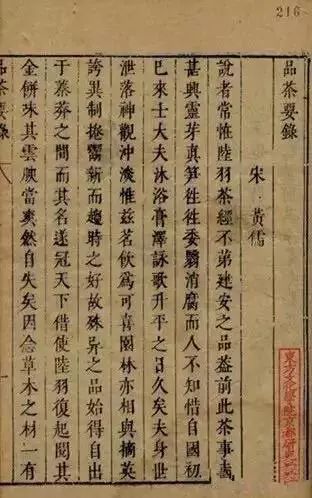 216
品茶要錄
宋 黃儒
說者常恠陸羽茶經不第建安之品葢前此茶事未
甚興靈芽真笋徃徃委翳消腐而人不知惜自國初
已來士大夫沐浴膏澤詠歌升平之日久矣夫身世
泄落神觀沖淡惟兹茗飲為可喜園林亦相與摘英
誇異制捲鬻新而趨時之好故殊異之品始得自出
于蓁莽之間而其名遂冠天下借使陸羽復起閱其
金餅味其雲腴當爽然自失矣因念草木之材一有
品茶要錄